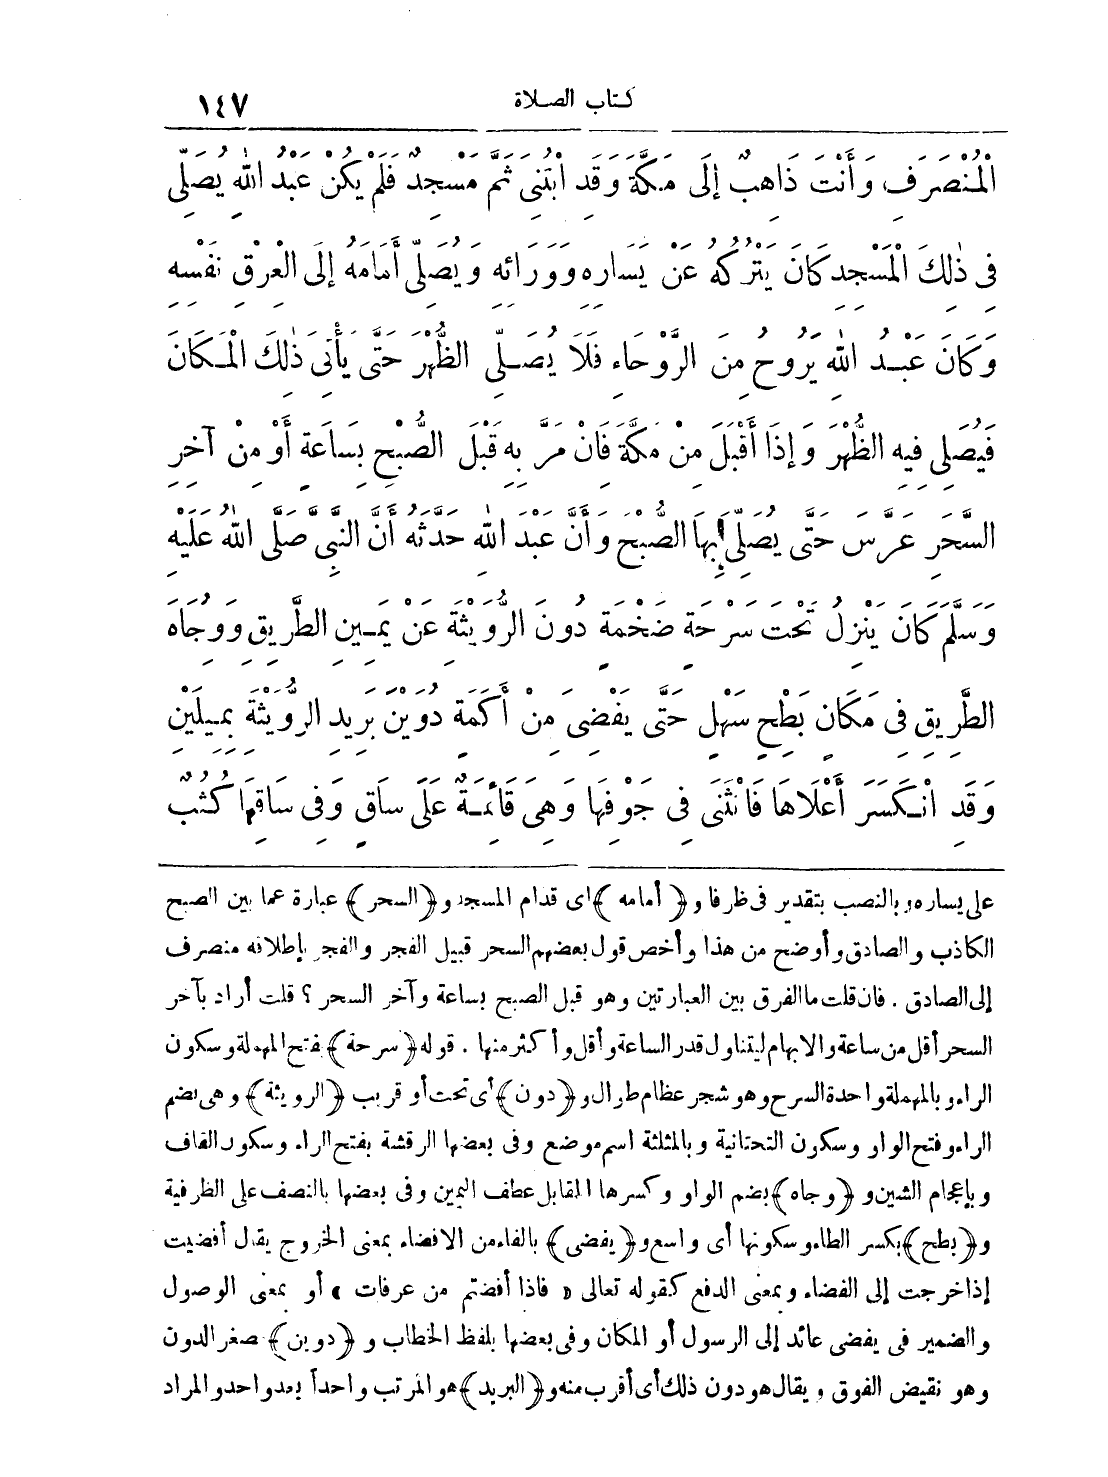 كتاب الصلاة ١٤٧
الْمُنْصَرَفِ وَأَنْتَ ذَاهِبٌ إِلَى مَكَّةَ وَقَدِ ابْتُنِىَ ثَمَّ مَسْجِدٌ فَلَمْ يَكُنْ عَبْدُ اللهِ يُصَلِّى
فِى ذٰلِكَ الْمَسْجِدِ كَانَ يَتْرُكُهُ عَنْ يَسَارِهِ وَوَرَائِهِ وَيُصَلِّى أَمَامَهُ إِلَى الْعِرْقِ نَفْسِهِ
وَكَانَ عَبْدُ اللهِ يَرُوحُ مِنَ الرَّوْحَاءِ فَلَا يُصَلِّى الظُّهْرَ حَتَّى يَأْتِىَ ذٰلِكَ الْمَكَانَ
فَيُصَلِّى فِيهِ الظُّهْرَ وَإِذَا أَقْبَلَ مِنْ مَكَّةَ فَانْ مَرَّ بِهِ قَبْلَ الصُّبْحِ بِسَاعَةٍ أَوْ مِنْ آخِرِ
السَّحَرِ عَرَّسَ حَتَّى يُصَلِّىَ بِهَا الصُّبْحَ وَأَنَّ عَبْدَ اللهِ حَدَّثَهُ أَنَّ النَّبِىَّ صَلَّى اللهُ عَلَيْهِ
وَسَلَّمَ كَانَ يَنْزِلُ تَحْتَ سَرْحَةٍ ضَخْمَةٍ دُونَ الرُّوَيْثَةِ عَنْ يَمِينِ الطَّرِيقِ وَوُجَاهَ
الطَّرِيقِ فِى مَكَانٍ بَطْحٍ سَهْلٍ حَتَّى يُفْضِىَ مِنْ أَكَمَةٍ دُوَيْنَ بَرِيدِ الرُّوَيْثَةِ بِمِيلَيْنِ
وَقَدِ انْكَسَرَ أَعْلَاهَا فَانْثَنَى فِى جَوْفِهَا وَهِىَ قَائِمَةٌ عَلَى سَاقٍ وَفِى سَاقِهَا كُثُبٌ
على يساره وبالنصب بتقدير فى ظرفا و﴿أمامه﴾ اى قدام المسجد و﴿السحر﴾ عبارة عما بين الصبح
الكاذب والصادق وأوضح من هذا وأخص قول بعضهم السحر قبيل الفجر والفجر بإطلاقه منصرف
إلى الصادق . فان قلت ما الفرق بين العبارتين وهو قبل الصبح بساعة وآخر السحر ؟ قلت أراد بآخر
السحر أقل من ساعة والابهام ليتناول قدر الساعة وأقل وأكثر منها . قوله ﴿سرحة﴾ بفتح المهملة وسكون
الراء وبالمهملة واحدة السرح وهو شجر عظام طوال و﴿دون﴾ أى تحت أو قريب ﴿الرويثة﴾ وهى بضم
الراء وفتح الواو وسكون التحتانية وبالمثلثة اسم موضع وفى بعضها الرقشة بفتح الراء وسكون القاف
وبإعجام الشين و ﴿وجاه﴾ بضم الواو وكسرها المقابل عطف اليمين وفى بعضها بالنصف على الظرفية
و﴿بطح﴾ بكسر الطاء وسكونها أى واسع و﴿يفضى﴾ بالفاء من الافضاء بمعنى الخروج يقال أفضيت
إذا خرجت إلى الفضاء وبمعنى الدفع كقوله تعالى « فاذا أفضتم من عرفات » أو بمعنى الوصول
والضمير فى يفضى عائد إلى الرسول أو المكان وفى بعضها بلفظ الخطاب و ﴿دوين﴾ صغر الدون
وهو نقيض الفوق ويقال هو دون ذلك أى أقرب منه و﴿البريد﴾ هو المرتب واحداً بعد واحد والمراد